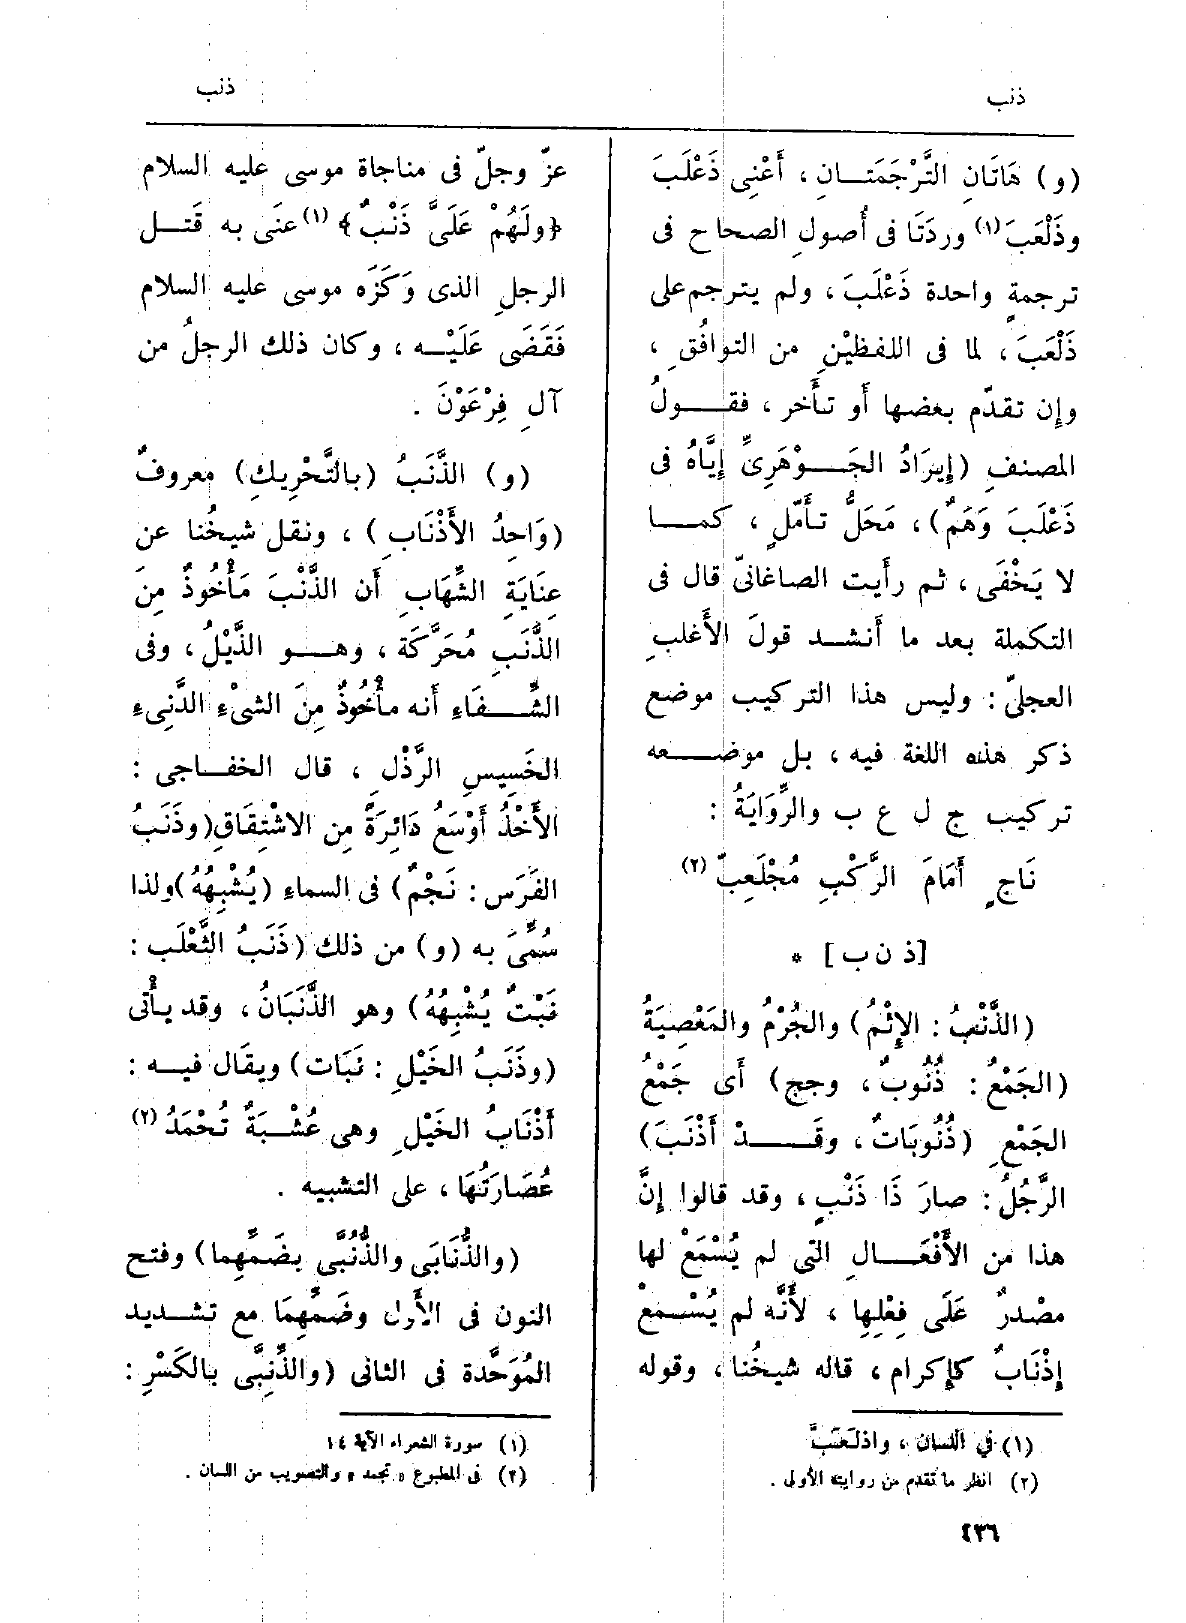 ذنب
ذنب
(و) هَاتَانِ التَّرْجَمَتَانِ ، أَعْنِى ذَعْلَبَ
وذَلْعَبَ(١) وردَتَا فى أُصولِ الصحاح فى
ترجمةٍ واحدة ذَعْلَبَ ، ولم يترجم على
ذَلْعَبَ ، لما فى اللفظيْنِ من التوافُقِ ،
وإن تقدّم بعضها أو تأَخر ، فقولُ
المصنفِ (إِيرَادُ الجَوْهَرِىِّ إِيَّاهُ فى
ذَعْلَبَ وَهَمٌ) ، مَحَلُّ تأَمّلٍ ، كما
لا يَخْفَى ، ثم رأَيت الصاغانىّ قال فى
التكملة بعد ما أَنشد قولَ الأَغلبِ
العجلىّ : وليس هذا التركيب موضع
ذكر هذه اللغة فيه ، بل موضعه
تركيب ج ل ع ب والرِّوَايَةُ :
نَاجٍ أَمَامَ الرَّكْبِ مُجْلَعِبّ (٢)
[ذ ن ب] *
(الذَّنْبُ : الإِثْمُ) والجُرْمُ والمَعْصِيَةُ
(الجَمْعُ : ذُنُوبٌ ، وجج) أَى جَمْعُ
الجَمْعِ (ذُنُوبَاتٌ ، وقَدْ أَذْنَبَ)
الرَّجُلُ : صارَ ذَا ذَنْبٍ ، وقد قالوا إِنَّ
هذا من الأَفْعَالِ التى لم يُسْمَعْ لها
مصْدرٌ عَلَى فِعْلِها ، لأَنَّه لم يُسْمعْ
إِذْنَابٌ كإِكرام ، قاله شيخُنا ، وقوله
(١) في اللسان ، واذلَعَبَّ
(٢) انظر ما تقدم من روايته الأولى .
عزّ وجلّ فى مناجاة موسى عليه السلام
﴿ولَهُمْ عَلَىَّ ذَنْبٌ﴾ (١) عنَى به قَتل
الرجلِ الذى وَكَزَه موسى عليه السلام
فَقَضَى عَلَيْه ، وكان ذلك الرجلُ من
آلِ فِرْعَوْنَ .
(و) الذَّنَبُ (بالتَّحْرِيكِ) معروفٌ
(وَاحِدُ الأَذْنَابِ) ، ونقل شيخُنا عن
عِنَايَةِ الشِّهَابِ أَن الذَّنْبَ مَأْخُوذٌ مِنَ
الذَّنَبِ مُحَرَّكَة ، وهو الذَّيْلُ ، وفى
الشِّفَاءِ أَنه مأْخُوذٌ مِنَ الشىْءِ الدَّنِىءِ
الخَسِيسِ الرَّذْلِ ، قال الخفاجى :
الأَخْذُ أَوْسَعُ دَائِرَةً مِن الاشْتِقَاقِ (وذَنَبُ
الفَرَسِ : نَجْمٌ) فى السماءِ (يُشْبِهُهُ) ولذا
سُمِّىَ به (و) من ذلك (ذَنَبُ الثَّعْلَبِ :
نَبْتٌ يُشْبِهُهُ) وهو الذَّنَبَانُ ، وقد يأْتى
(وذَنَبُ الخَيْلِ : نَبَات) ويقَال فيه :
أَذْنَابُ الخَيْلِ وهى عُشْبَةٌ تُحْمَدُ (٢)
عُصَارَتُهَا ، على التشبيه .
(والذُّنَابَى والذُّنُبَّى بضَمِّهِما) وفتح
النون فى الأَوّل وضَمِّهِمَا مع تشديد
المُوَحَّدة فى الثانى (والذِّنِبَّى بالكَسْرِ :
(١) سورة الشعراء الآية ١٤
(٢) فى المطبوع « تجمد » والتصويب من اللسان .
٤٣٦